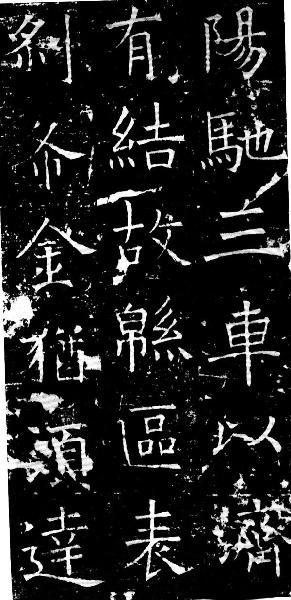 陽馳三車以濟
有結故緜區表
刹布金猶須達